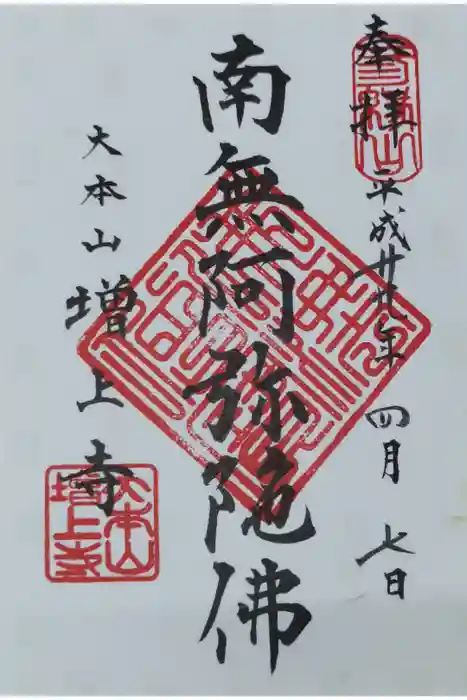 奉拝
平成廿年四月七日
南無阿弥陀佛
大本山増上寺
三縁山
大本山
増上寺